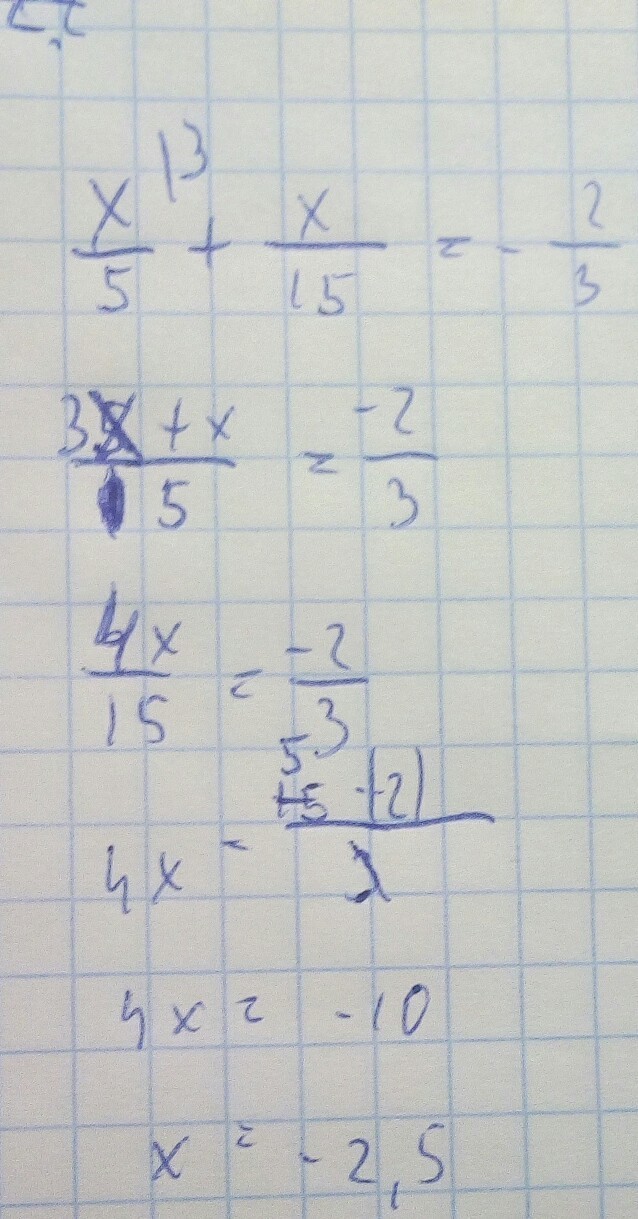 x/5 |3 + x/15 = - 2/3
3x + x/15 = -2/3
4x/15 = -2/3
4x = 15 5 · (-2)/3
4x = -10
x = -2,5